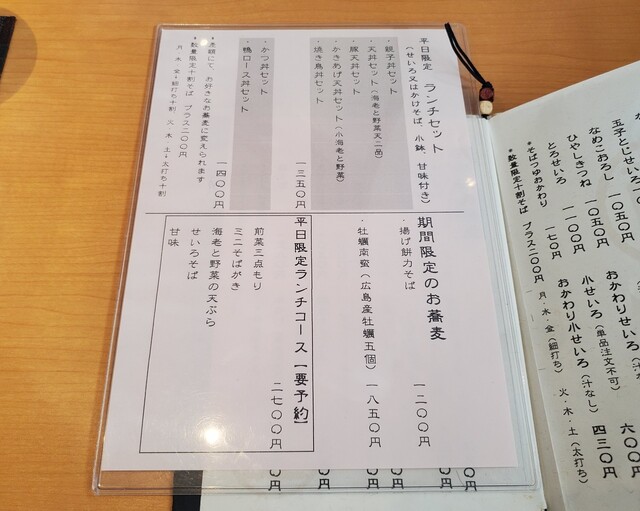 平日限定 ランチセット
(せいろ又はかけそば、小鉢、甘味付き)
・親子丼セット
・天丼セット(海老と野菜天二品)
・豚天丼セット
・かきあげ天丼セット(小海老と野菜)
・焼き鳥丼セット
一三五〇円
・かつ丼セット
・鴨ロース丼セット
一四〇〇円
*差額にて、お好きなお蕎麦に変えられます
*数量限定十割そば プラス二〇〇円
月・木・金→細打ち十割 火・水・土→太打ち十割
期間限定のお蕎麦
・揚げ餅力そば
一二〇〇円
・牡蠣南蛮(広島産牡蠣五個)
一八五〇円
平日限定ランチコース【要予約】
二七〇〇円
前菜三点もり
ミニそばがき
海老と野菜の天ぷら
せいろそば
甘味
玉子とじせいろ
一〇五〇円
なめこおろし
一〇五〇円
ひやしきつね
一一〇〇円
とろせいろ
*そばつゆおかわり
一七〇円
*数量限定十割そば プラス二〇〇円
おかわりせいろ
(単品注文不可)
六〇〇
小せいろ(汁なし)
四三〇円
おかわり小せいろ(汁なし)
月・水・金(細打ち) 火・木・土(太打ち)